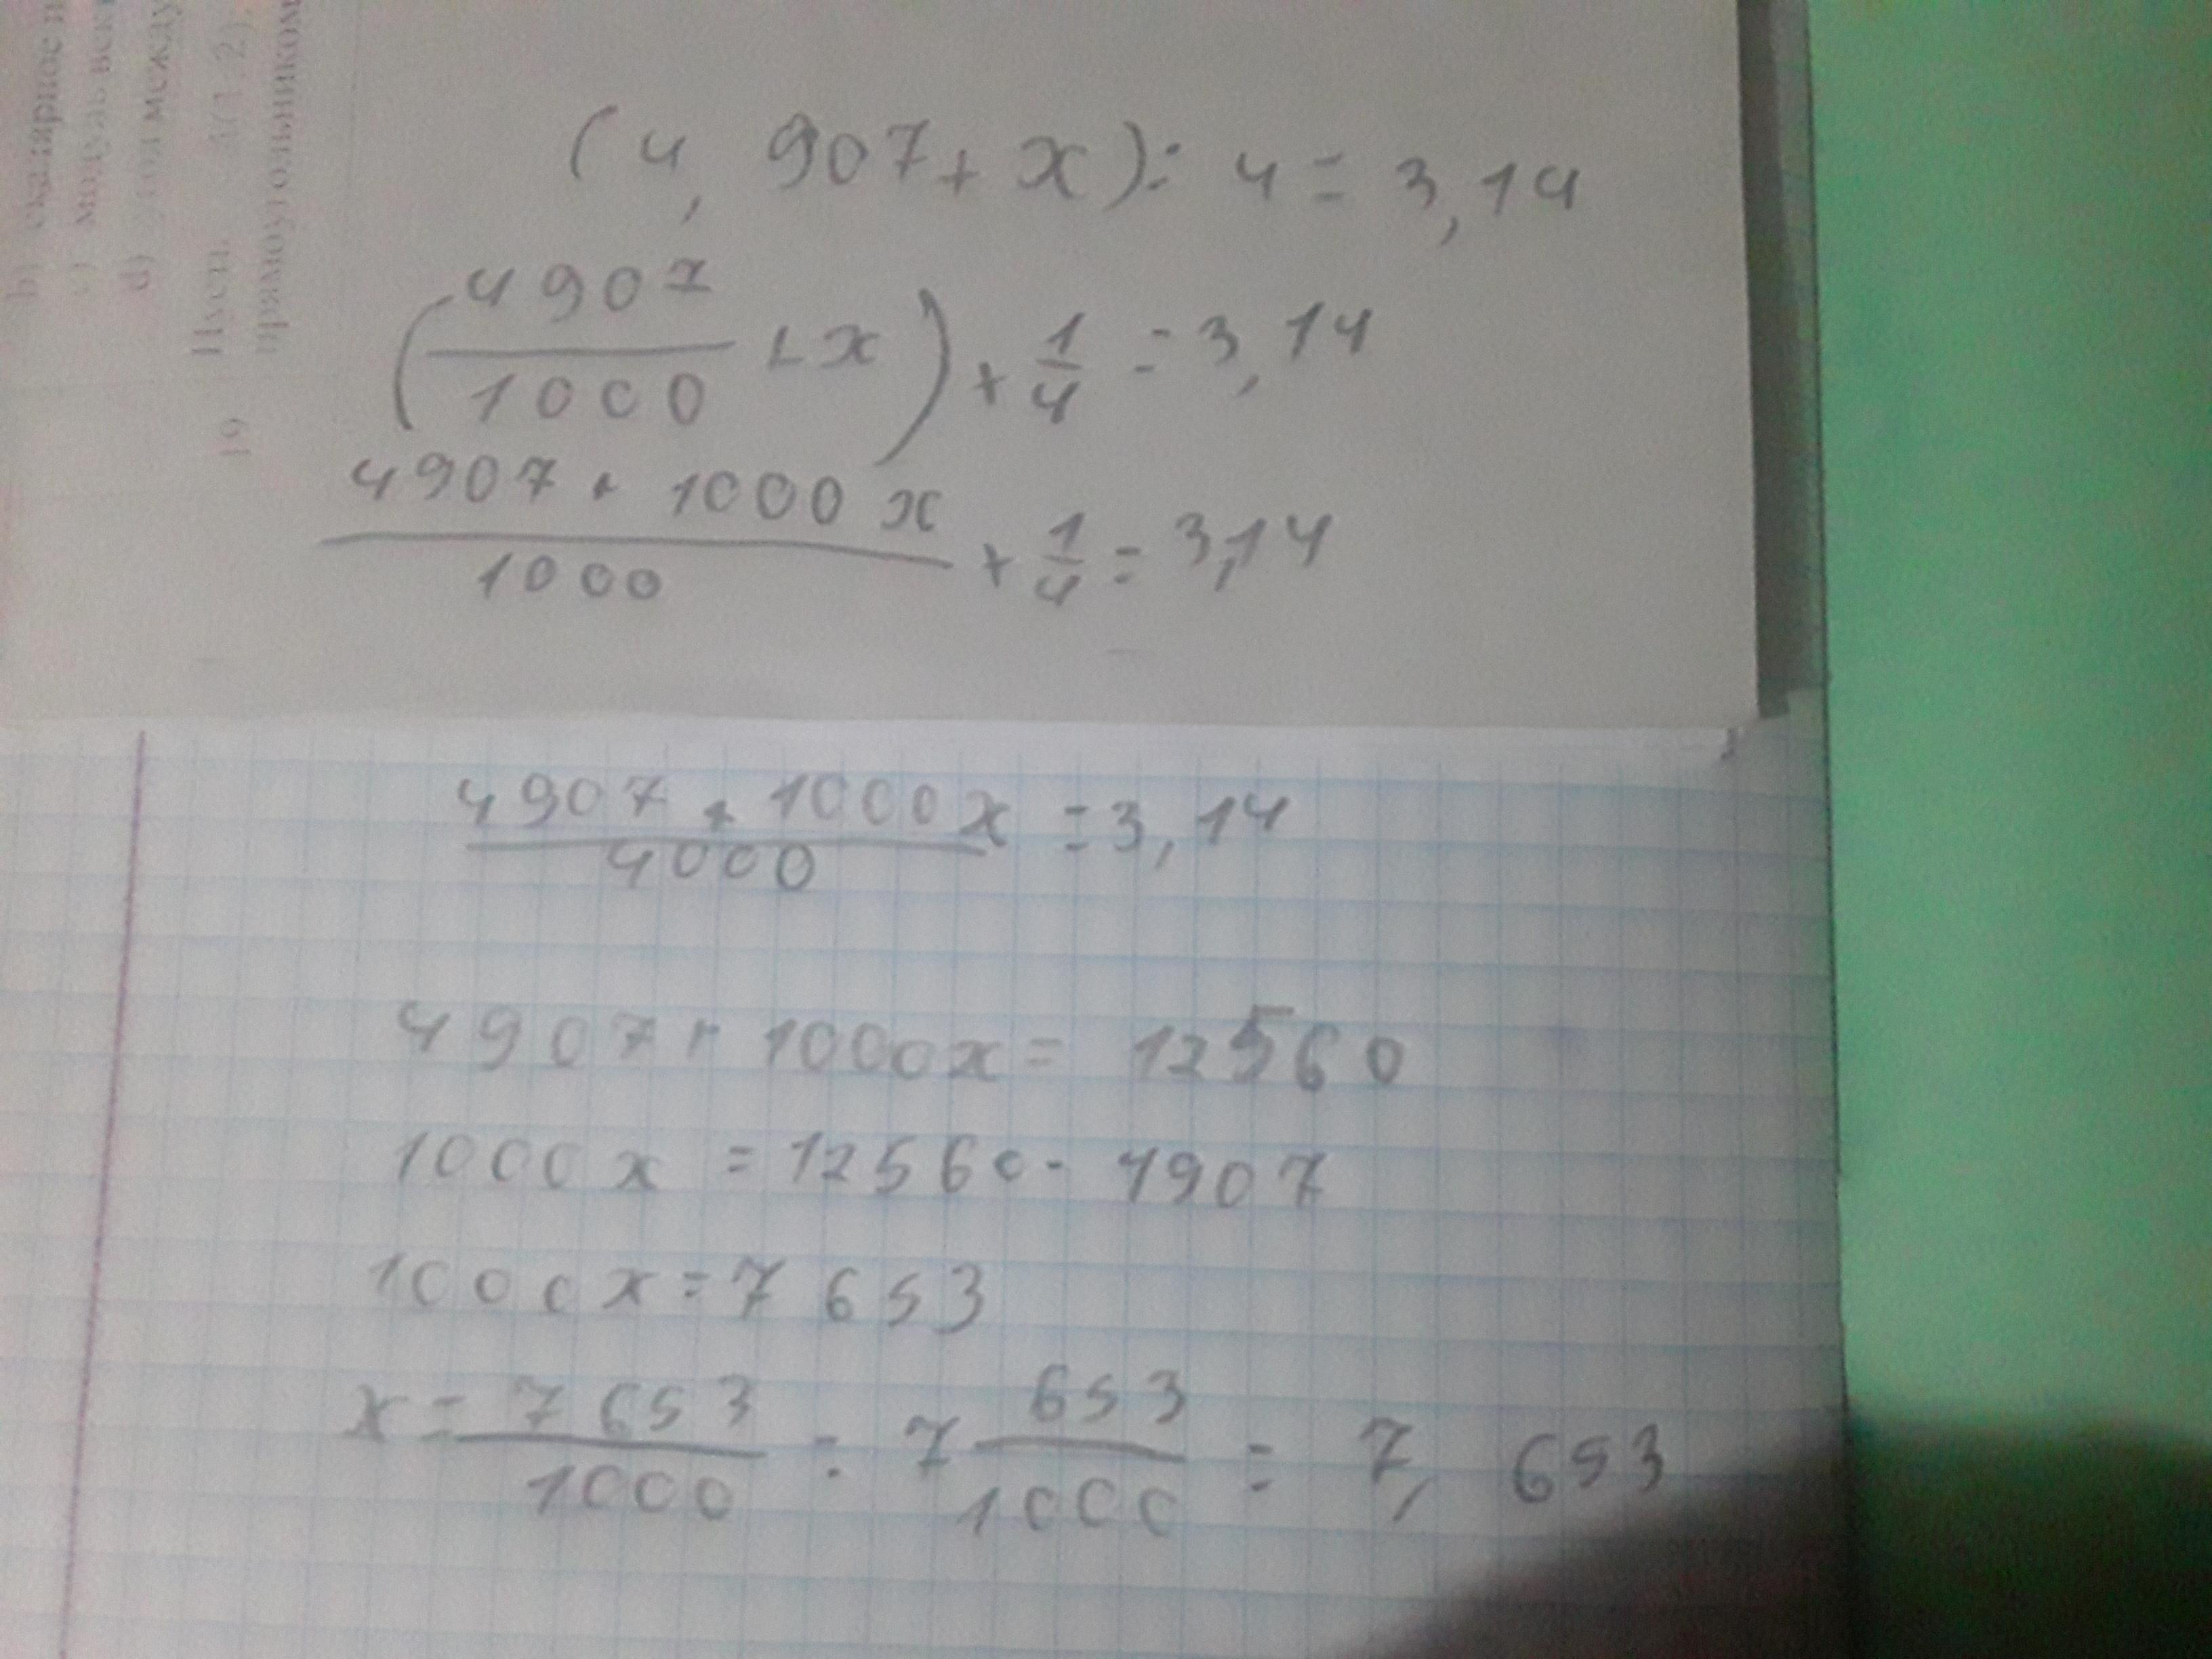 (4,907+x):4=3,14
(4907/1000+x)×1/4=3,14
4907+1000x/1000×1/4=3,14
4907+1000x/4000=3,14
4907+1000x=12560
1000x=12560-4907
1000x=7653
x=7653/1000=7 653/1000=7,653